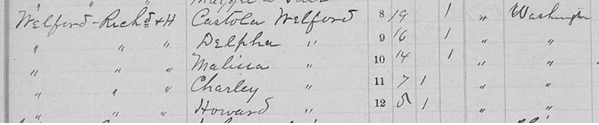 Welford - Richd & H Castola Welford 8 19 1 " Washington
" " " Delpha " 9 16 1 " "
" " " Malissa " 10 14 1 " "
" " " Charley " 11 7 1 " "
" " " Howard " 12 5 1 " "